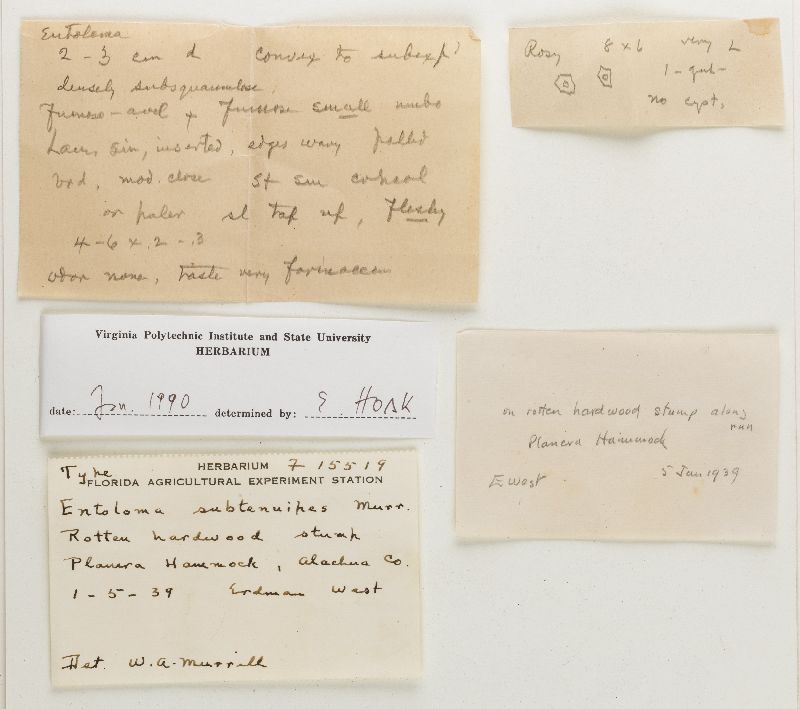 Entoloma
2-3 cm d convex to subexp'
densely subsquamulose
fumoso-avel x fumose small umbo
Lam, sin, inserted, edges wavy pallid
brd, mod. close St sm concol
or paler sl tap up, fleshy
4-6 x .2-.3
odor none, taste very farinaceous
Rosy 8x6 very L
1-gut-
no cyst,
Virginia Polytechnic Institute and State University
HERBARIUM
date: Jan. 1990 determined by: E. HORAK
on rotten hardwood stump along
run
Planera Hammock
E West 5 Jan 1939
Type HERBARIUM F 15519
FLORIDA AGRICULTURAL EXPERIMENT STATION
Entoloma subtenuipes Murr.
Rotten hardwood stump
Planera Hammock, Alachua Co.
1-5-39 Erdman West
Det. W.A. Murrill